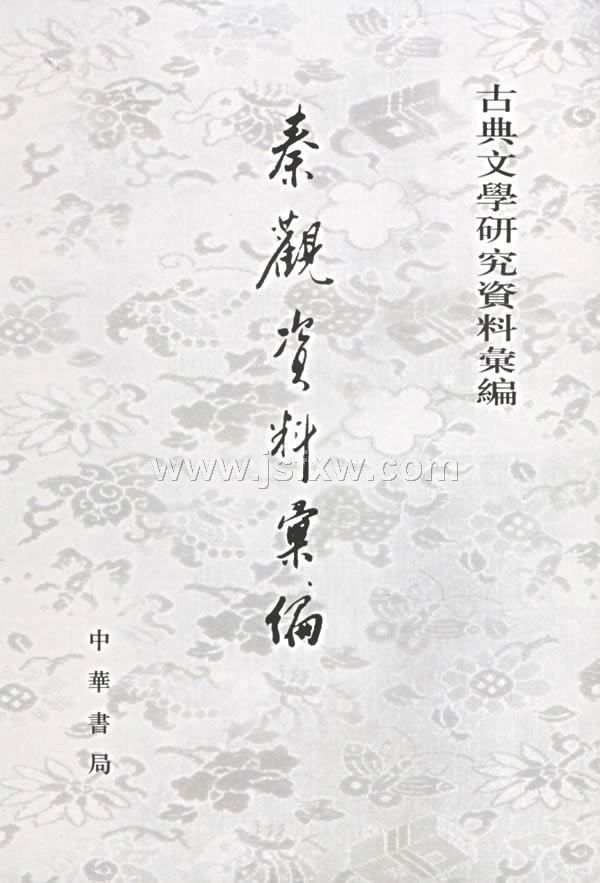 古典文學研究資料彙編
秦觀資料彙編
中華書局
www.jsfxw.com